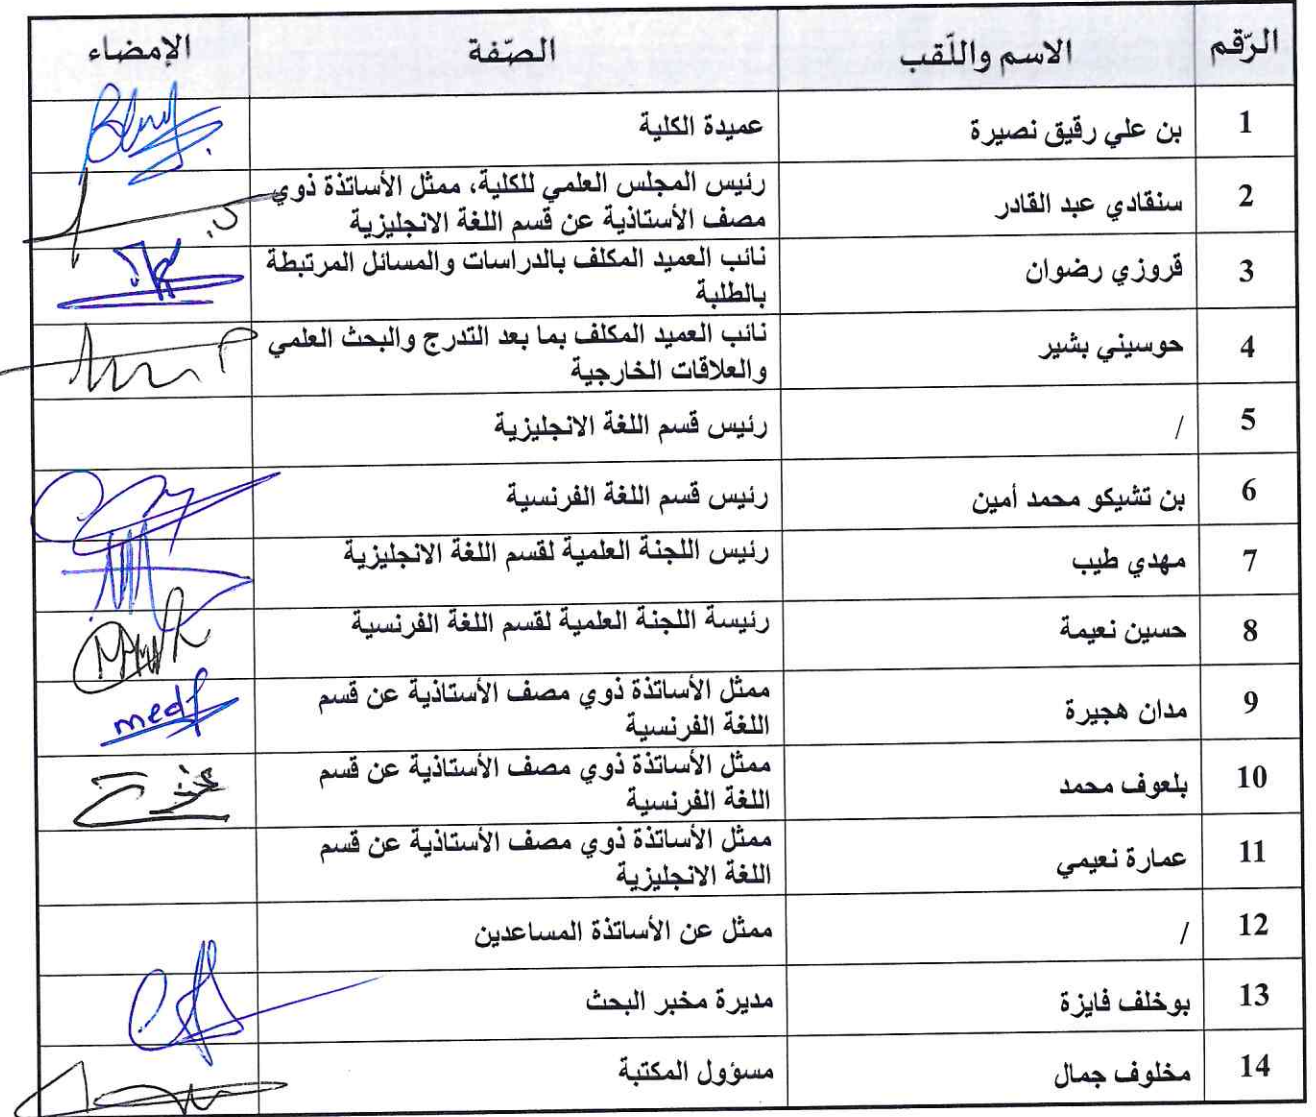 الرّقم الاسم واللّقب الصّفة الإمضاء
1 بن علي رقيق نصيرة عميدة الكلية
2 سنقادي عبد القادر رئيس المجلس العلمي للكلية، ممثل الأساتذة ذوي
مصف الأستاذية عن قسم اللغة الانجليزية
3 قروزي رضوان نائب العميد المكلف بالدراسات والمسائل المرتبطة
بالطلبة
4 حوسيني بشير نائب العميد المكلف بما بعد التدرج والبحث العلمي
والعلاقات الخارجية
5 / رئيس قسم اللغة الانجليزية
6 بن تشيكو محمد أمين رئيس قسم اللغة الفرنسية
7 مهدي طيب رئيس اللجنة العلمية لقسم اللغة الانجليزية
8 حسين نعيمة رئيسة اللجنة العلمية لقسم اللغة الفرنسية
9 مدان هجيرة ممثل الأساتذة ذوي مصف الأستاذية عن قسم
اللغة الفرنسية
10 بلعوف محمد ممثل الأساتذة ذوي مصف الأستاذية عن قسم
اللغة الفرنسية
11 عمارة نعيمي ممثل الأساتذة ذوي مصف الأستاذية عن قسم
اللغة الانجليزية
12 / ممثل عن الأساتذة المساعدين
13 بوخلف فايزة مديرة مخبر البحث
14 مخلوف جمال مسؤول المكتبة